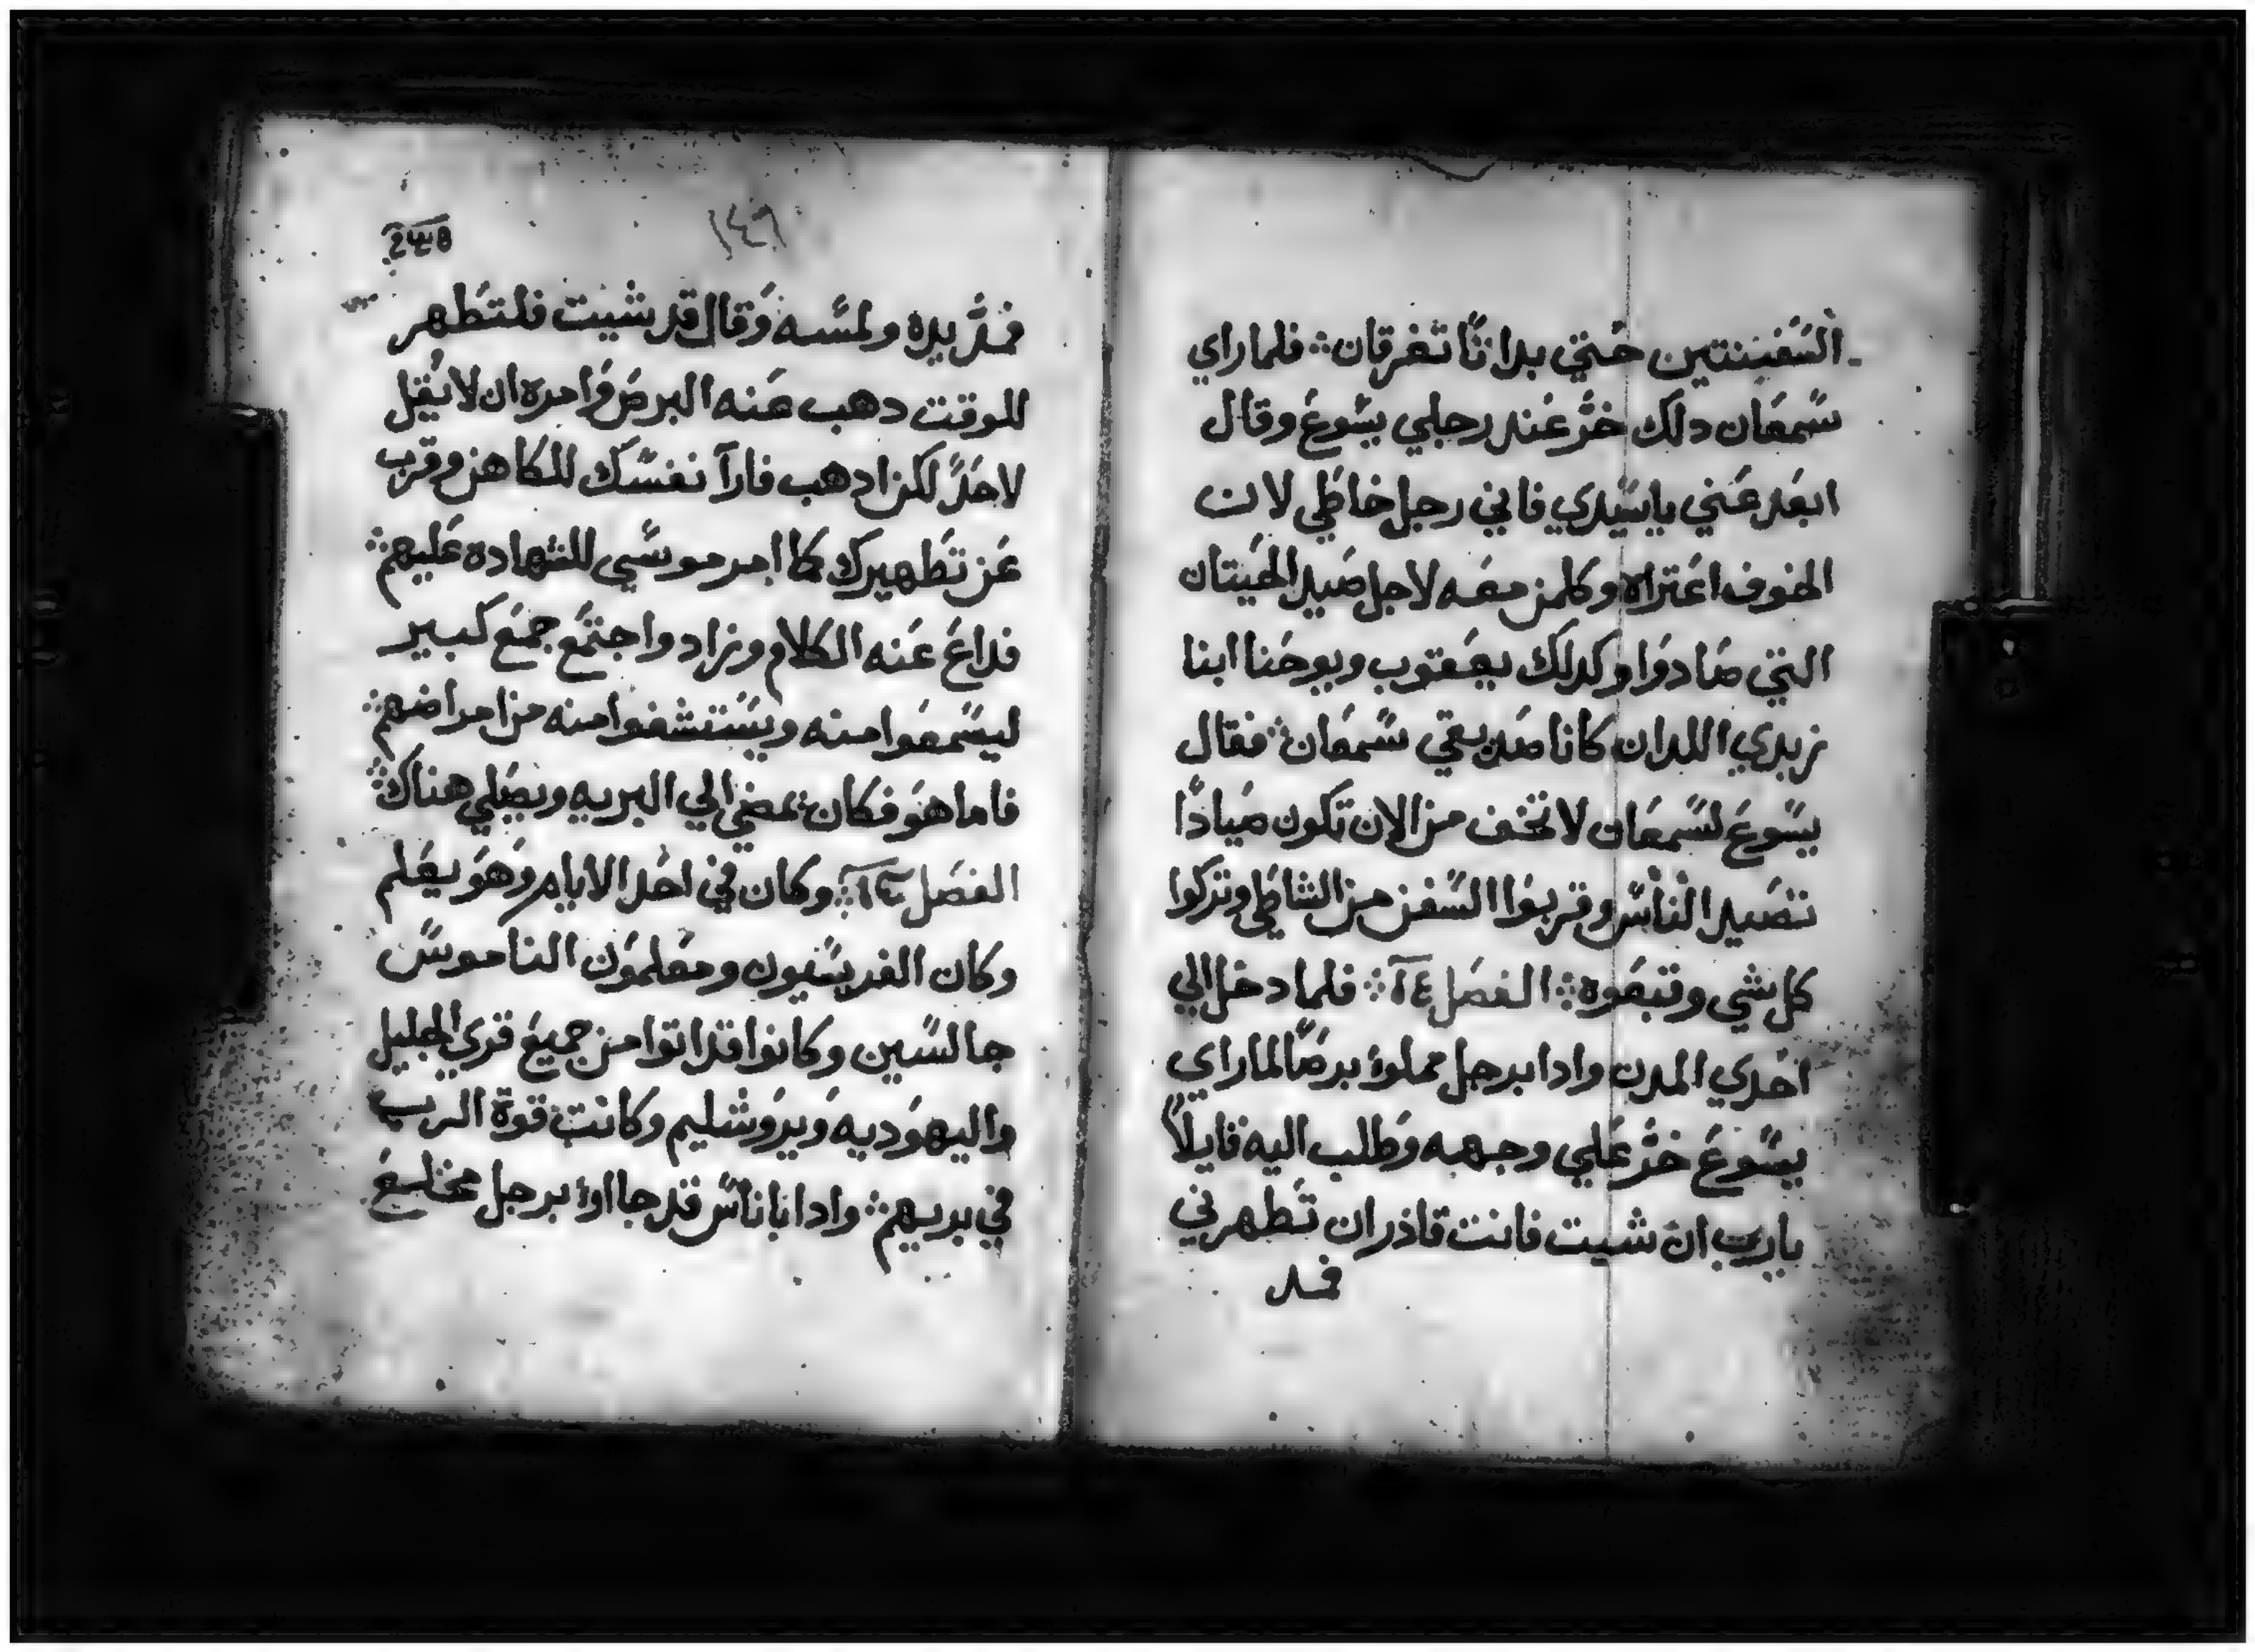 السفينتين حتي بداتا تغرقان فلما راي
سمعان دلك خر عند رجلي يسوع وقال
ابعد عني يا سيدي فاني رجل خاطي لان
الخوف اعتراه وكلمن معه لاجل صيد الحيتان
التي صادوا وكدلك يعقوب ويوحنا ابنا
زبدي اللدان كانا صديقي سمعان فقال
يسوع لسمعان لا تخف من الان تكون صيادا
تصيد الناس وقربوا السفن من الشاطي وتركوا
كل شي وتبعوه الفصل ١٤ فلما دخل الي
احدي المدن وادا برجل مملوء برصا لما راي
يسوع خر علي وجهه وطلب اليه قايلا
يا رب ان شيت فانت قادر ان تطهرني
فمد
١٤٩
فمد يده ولمسه وقال قد شيت فلتطهر
للوقت دهب عنه البرص وامره ان لا تقل
لاحد لكن ادهب فارا نفسك للكاهن وقرب
عن تطهيرك كما امر موسي للشهادة عليهم
فداع عنه الكلام وزاد واجتمع جمع كبير
ليسمعوا منه ويستشفوا منه من امراضهم
فاما هو فكان يمضي الي البريه ويصلي هناك
الفصل وكان في احد الايام وهو يعلم
وكان الفريسيون ومعلمون الناموس
جالسين وكانوا قد اتوا من جميع قري الجليل
واليهوديه ويروشليم وكانت قوة الرب
في بريهم وادا باناس قد جااوء برجل مخلع